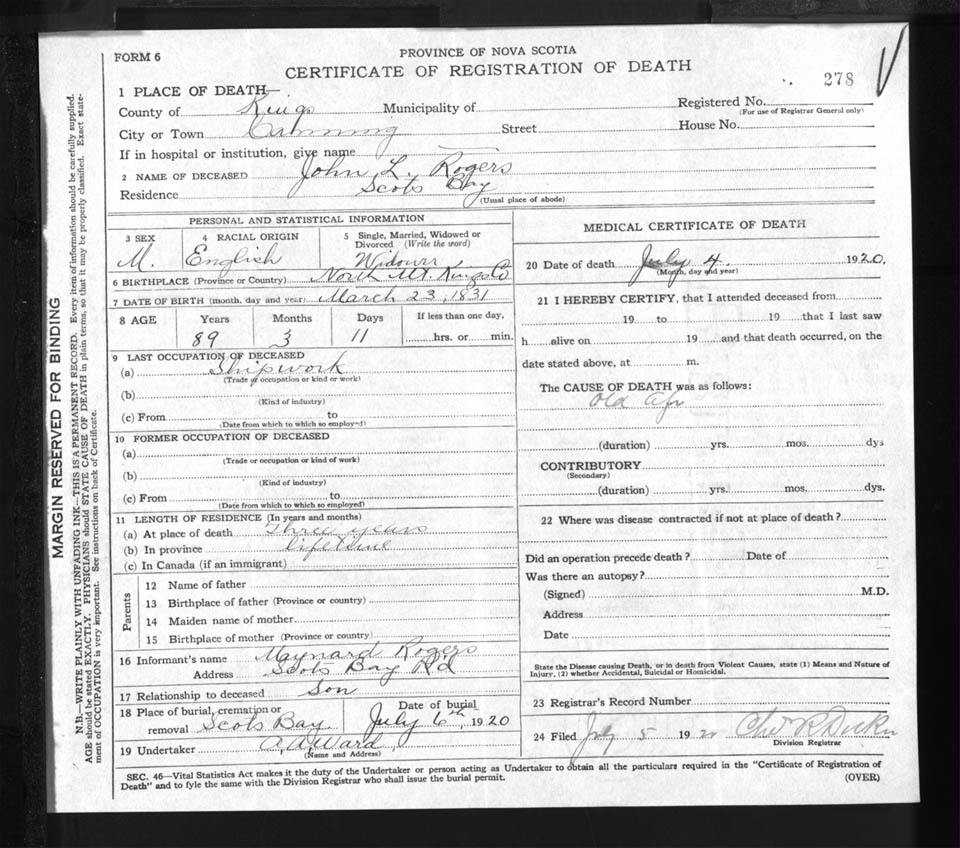 FORM 6
PROVINCE OF NOVA SCOTIA
CERTIFICATE OF REGISTRATION OF DEATH
278
1 PLACE OF DEATH—
County of Kings Municipality of
Registered No.
(For use of Registrar General only)
City or Town Canning Street House No.
If in hospital or institution, give name
2 NAME OF DECEASED John L. Rogers
Residence Scots Bay
(Usual place of abode)
PERSONAL AND STATISTICAL INFORMATION
3 SEX M.
4 RACIAL ORIGIN English
5 Single, Married, Widowed or Divorced (Write the word) Widower
6 BIRTHPLACE (Province or Country) North Mt. Kings Co
7 DATE OF BIRTH (month, day and year) March 23, 1831
8 AGE Years Months Days If less than one day,
89 3 11 hrs. or min.
9 LAST OCCUPATION OF DECEASED
(a) Shipwork
(Trade or occupation or kind or work)
(b)
(Kind of industry)
(c) From to
(Date from which to which so employed)
10 FORMER OCCUPATION OF DECEASED
(a)
(Trade or occupation or kind of work)
(b)
(Kind of industry)
(c) From to
(Date from which to which so employed)
11 LENGTH OF RESIDENCE (In years and months)
(a) At place of death Three years
(b) In province lifetime
(c) In Canada (if an immigrant)
Parents
12 Name of father
13 Birthplace of father (Province or country)
14 Maiden name of mother
15 Birthplace of mother (Province or country)
16 Informant's name Maynard Rogers
Address Scots Bay Rd
17 Relationship to deceased Son
18 Place of burial, cremation or removal Scots Bay
Date of burial July 6th, 1920
19 Undertaker A.A. Ward
(Name and Address)
MEDICAL CERTIFICATE OF DEATH
20 Date of death July 4. 1920.
(Month, day and year)
21 I HEREBY CERTIFY, that I attended deceased from
19 to 19 that I last saw
h alive on 19 and that death occurred, on the
date stated above, at m.
The CAUSE OF DEATH was as follows:
Old Age
(duration) yrs. mos. dys
CONTRIBUTORY
(Secondary)
(duration) yrs. mos. dys.
22 Where was disease contracted if not at place of death?
Did an operation precede death? Date of
Was there an autopsy?
(Signed) M.D.
Address
Date
State the Disease causing Death, or in death from Violent Causes, state (1) Means and Nature of
Injury, (2) whether Accidental, Suicidal or Homicidal.
23 Registrar's Record Number
24 Filed July 5 19 20 R
Division Registrar
SEC. 46—Vital Statistics Act makes it the duty of the Undertaker or person acting as Undertaker to obtain all the particulars required in the "Certificate of Registration of
Death" and to fyle the same with the Division Registrar who shall issue the burial permit.
(OVER)
MARGIN RESERVED FOR BINDING
N.B.—WRITE PLAINLY WITH UNFADING INK—THIS IS A PERMANENT RECORD. Every item of information should be carefully supplied.
AGE should be stated EXACTLY. PHYSICIANS should STATE CAUSE OF DEATH in plain terms, so that it may be properly classified. Exact state-
ment of OCCUPATION is very important. See instructions on back of Certificate.